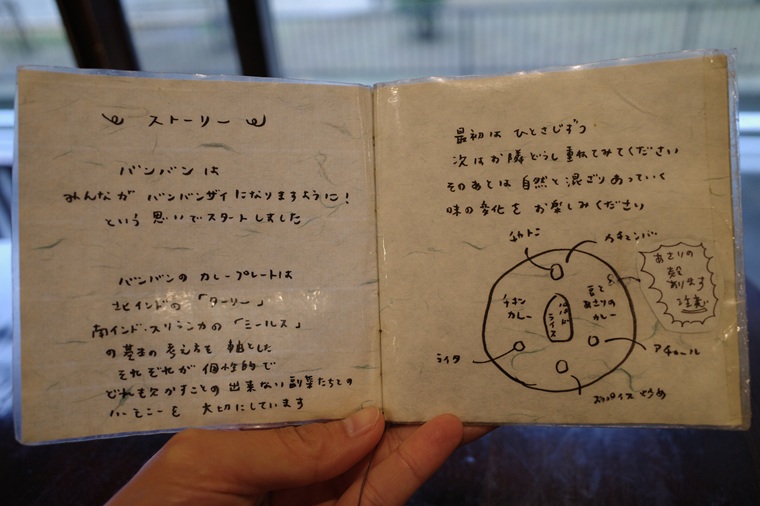 ストーリー
バンバンは
みんなが バンバンザイになりますように!
という 思いでスタートしました
バンバンの カレープレートは
北インドの「ターリー」
南インド・スリランカの「ミールス」
の基本の考え方を 軸とした
それぞれが 個性的で
どれも欠かすことの 出来ない副菜たちとの
ハーモニーを 大切にしています
最初は ひとさじずつ
次はお隣どうし 重ねてみてください
そのあとは 自然と 混ざりあっていく
味の変化を お楽しみください
カチュンバ
チキン
カレー
ライス
豆と
あさりの
カレー
あさりの
殻
あります
注意
ライタ
アチャール
スパイス炒め